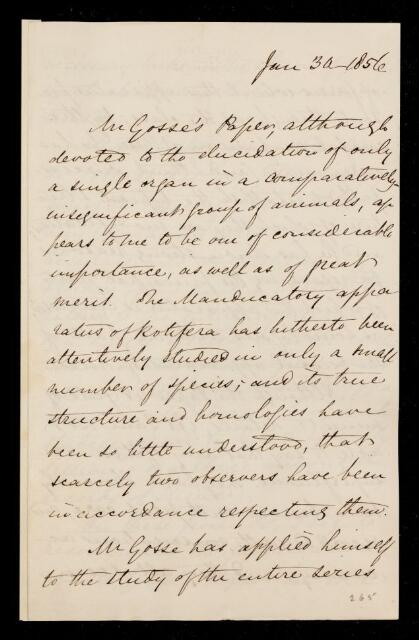 Jan 30 - 1856
Mr Gosse's Paper, although
devoted to the elucidation of only
a single organ in a comparatively
insignificant group of animals, ap
pears to me to be one of considerable
importance, as well as of great
merit. The Manducatory appa
ratus of Rotifera has hitherto been
attentively studied in only a small
number of species; and its true
structure and homologies have
been so little understood, that
scarcely two observers have been
in accordance respecting them.
Mr Gosse has applied himself
to the study of the entire series
265